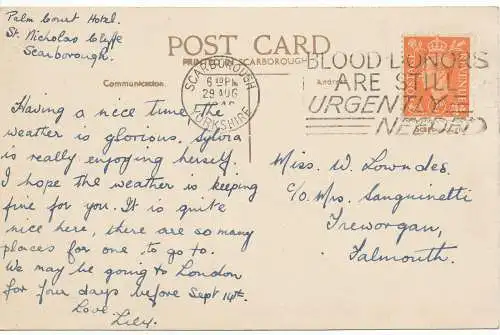 Palm Court Hotel.
St. Nicholas Cliffe
Scarborough.
POST CARD
PRINTED IN SCARBOROUGH
Communication.
SCARBOROUGH
YORKSHIRE
6 15 PM
29 AUG
BLOOD DONORS
ARE STILL
URGENTLY
NEEDED
Having a nice time the
weather is glorious, Sylvia
is really enjoying herself.
I hope the weather is keeping
fine for you. It is quite
nice here, there are so many
places for one to go to.
We may be going to London
for four days before Sept 14th.
Love
Lily.
Miss. W. Lowndes.
c/o Mrs. Sanguinetti
Treworgan,
Falmouth.